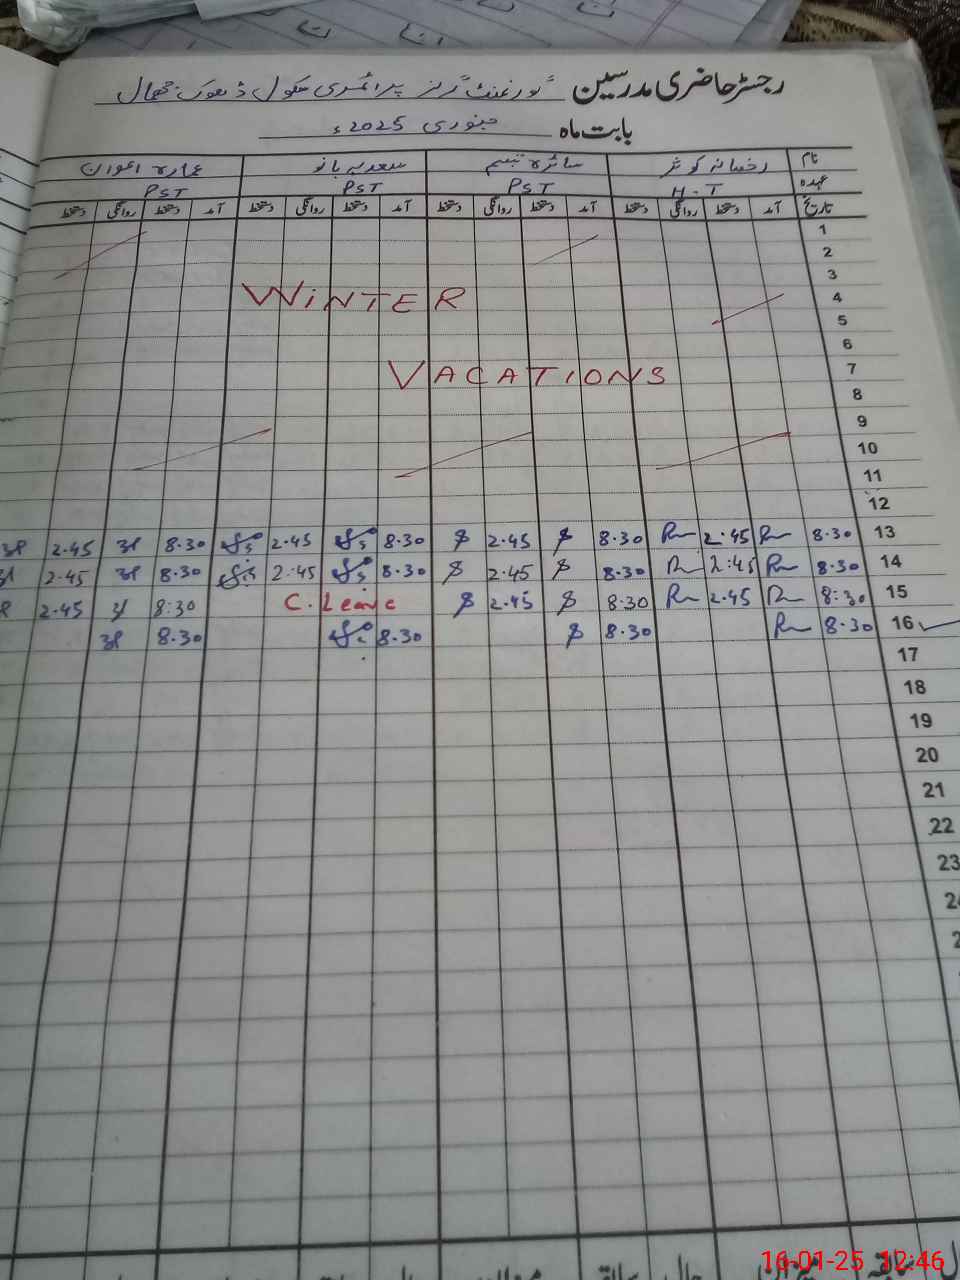 رجسٹر حاضری مدرسین گورنمنٹ گرلز پرائمری سکول ڈھوک
بابت ماہ جنوری 2025ء
نام رخسانہ کوثر سائرہ تبسم سعدیہ بانو عمارہ اعوان
عہدہ H.T PST PST PST
تاریخ آمد دستخط روانگی دستخط آمد دستخط روانگی دستخط آمد دستخط روانگی دستخط آمد دستخط روانگی دستخط
1
2
3
4 WINTER
5
6
7 VACATIONS
8
9
10
11
12
13 8.30 2.45 8.30 2.45 8.30 2.45 8.30 2.45
14 8.30 2:45 8.30 2.45 8.30 2.45 8.30 2.45
15 8:30 2.45 8.30 2.45 C. Leave 8:30 2.45
16 8.30 8.30 8.30 8.30
17
18
19
20
21
22
23
16-01-25 12:46